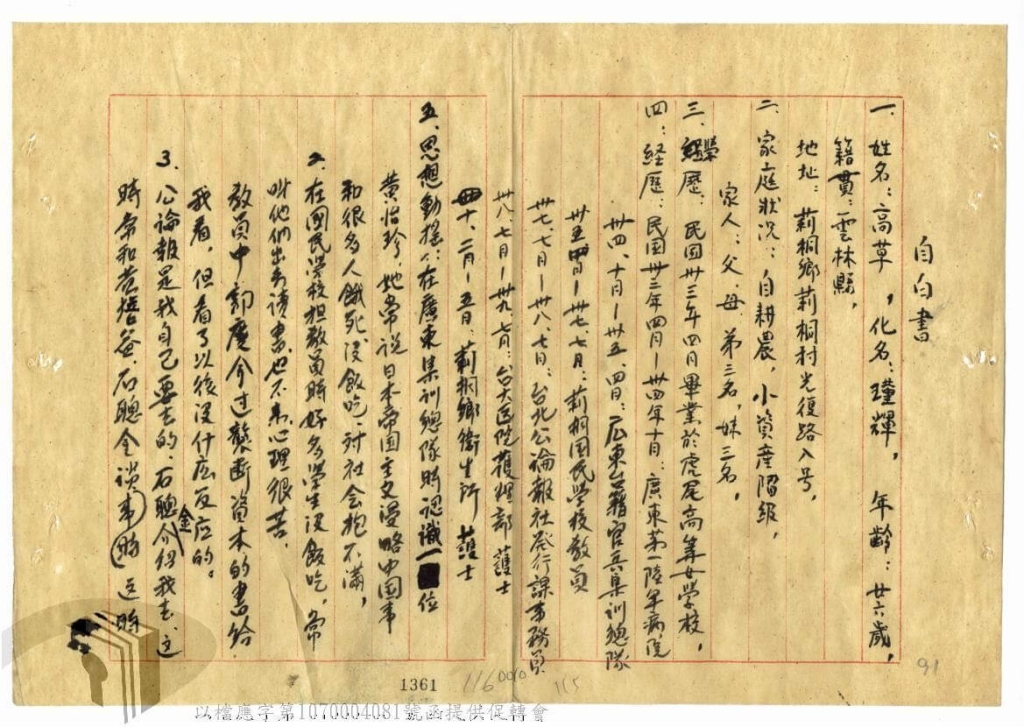 自白書
一、姓名:高草,化名:瑾輝,年齡:廿六歲,
籍貫:雲林縣,
地址:莿桐鄉莿桐村光復路入号,
二、家庭狀況:自耕農,小資産階級,
家人:父、母、弟三名,妹三名,
三、學歷:民国卅三年四月畢業於虎尾高等女学校,
四:経歷:民国卅三年四月—卅四年十月:廣東第一陸軍病院
卅四、十月—卅五、四月:広東台籍官兵集訓總隊
卅五四月—卅七、七月:莿桐国民学校教員
卅七、七月—卅八、七月:台北公論報社発行課事務員
卅八、七月—卅九、七月:台大医院護理部護士
四十、二月—五月:莿桐鄉衛生所護士
五、思想動搖:在廣東集訓總隊時認識一位
黄怡珍,她常说日本帝国主义侵略中国事
和很多人餓死没飯吃,対社会抱不満,
2、在國民學校担教員時好多學生没飯吃,常
叫他們出去讀書也不来心理很苦,
教員中郭慶介过襲断資本的書給
我看,但看了以後没什庅反应的。
3、公論報是我自己要去的,石聰金介绍我去,这
時常和黄培奕、石聰金談事(時)这時
1361
116
0010
115
91
以檔應字第1070004081號函提供促轉會